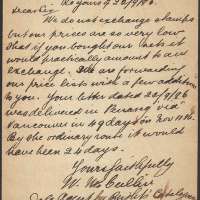 Dear Sir
We do not exchange stamps
but our prices are so very low
that if you bought our lots it
would practically amount to an
exchange. We are forwarding
our price lists with a few additions
to you. Your letter dated 22/9/86
was delivered in Penang via
Vancouver in 49 days on Nov 11th.
By the ordinary route it would
have been 24 days.
Yours faithfully